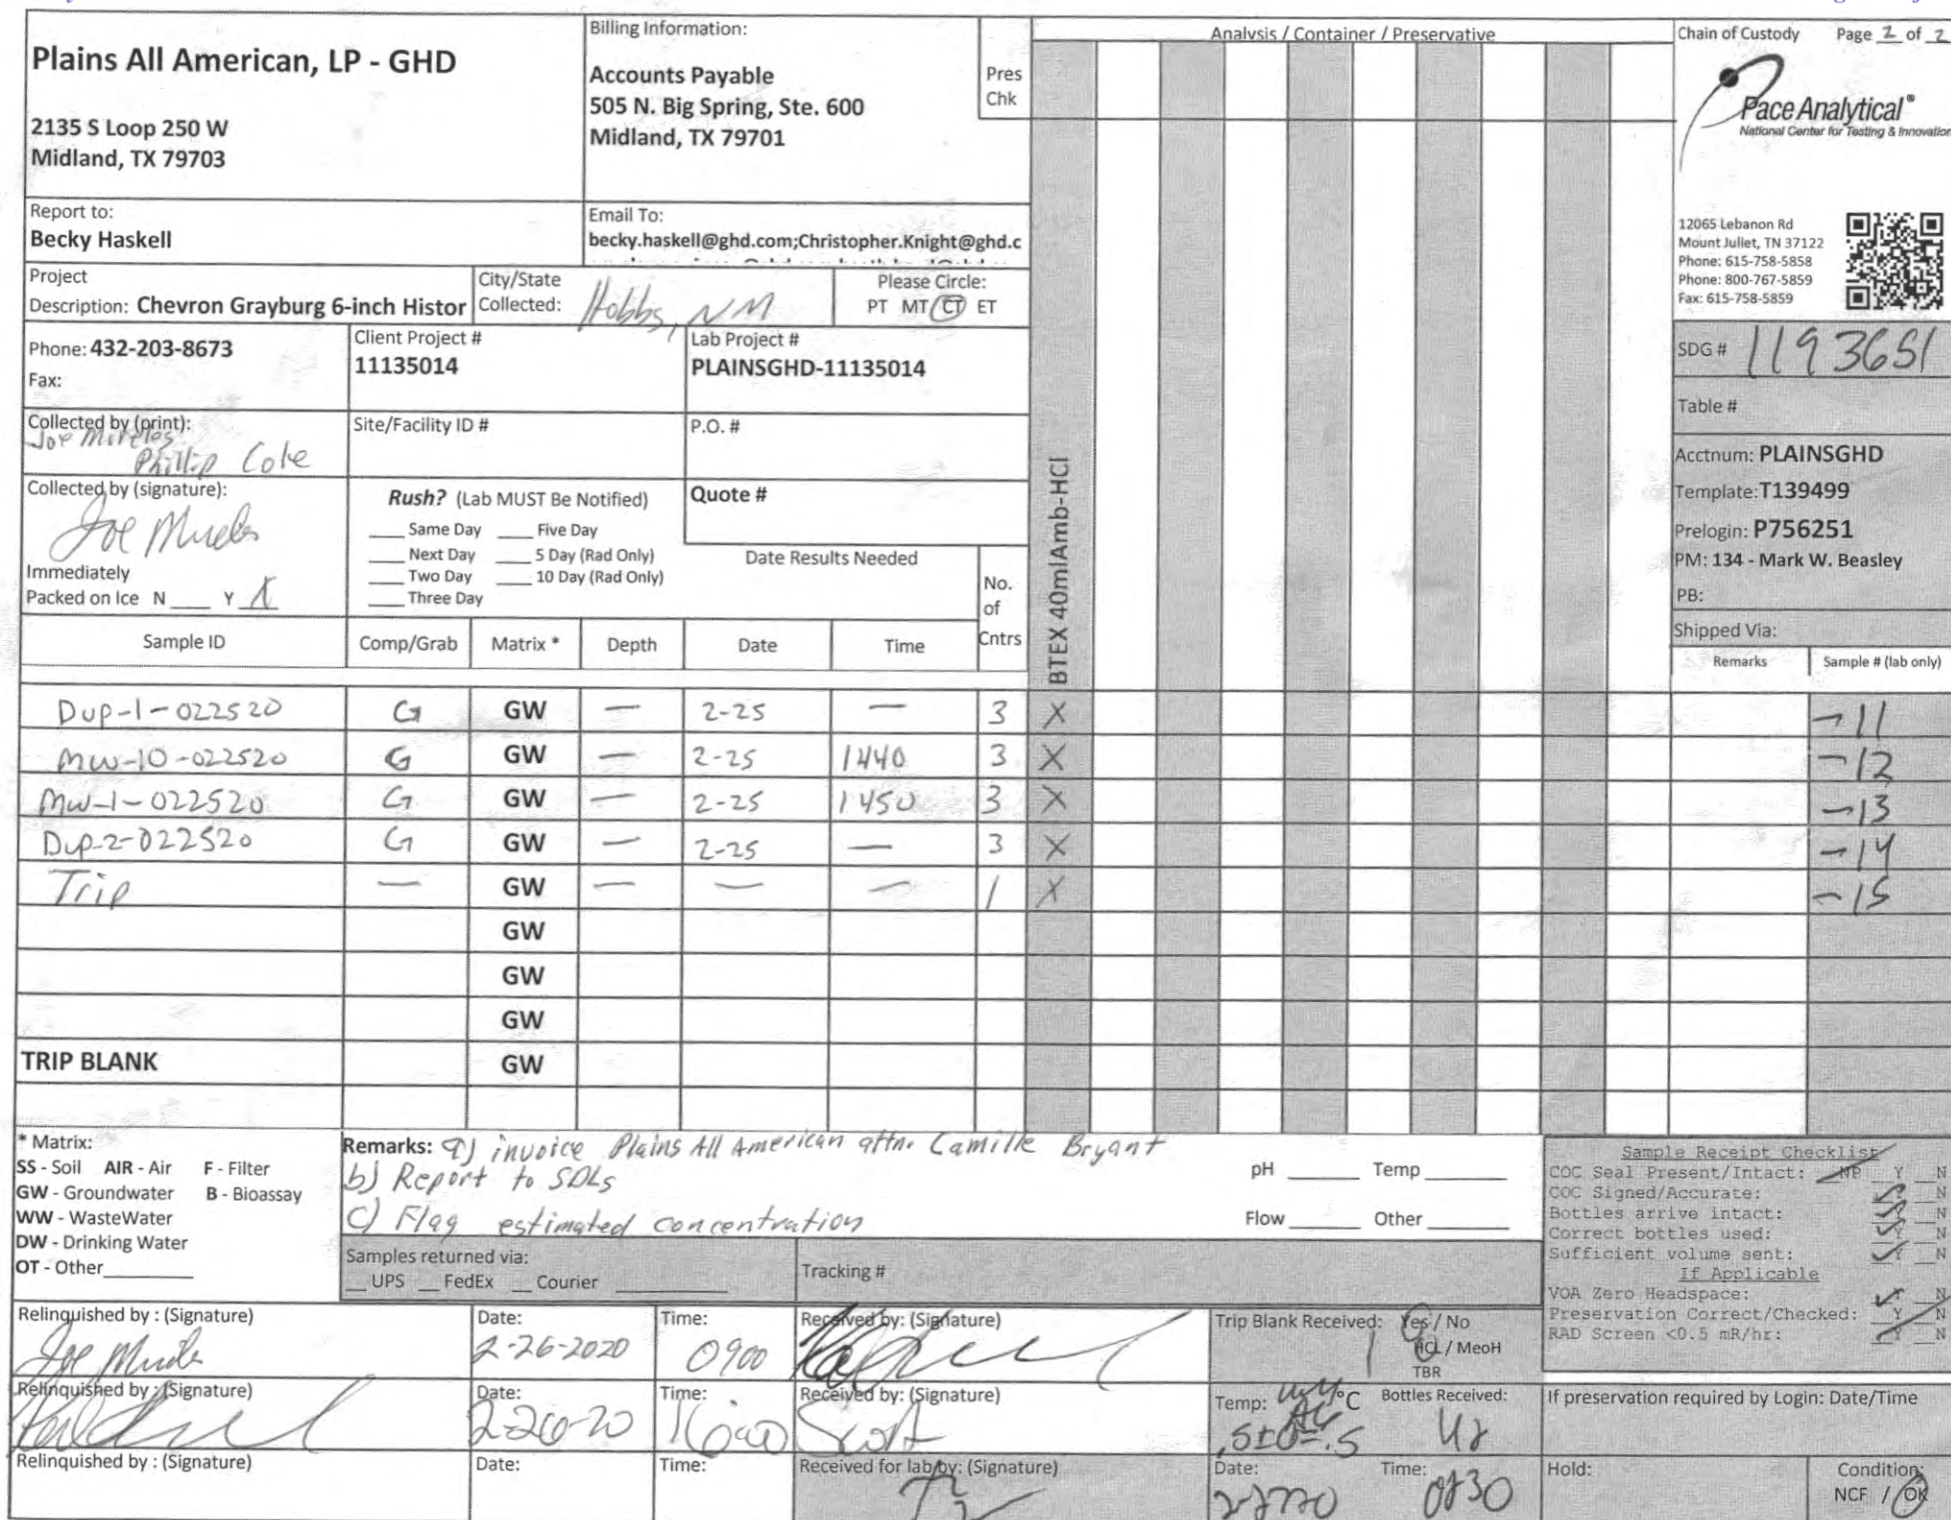 Plains All American, LP - GHD
2135 S Loop 250 W
Midland, TX 79703
Billing Information:
Accounts Payable
505 N. Big Spring, Ste. 600
Midland, TX 79701
Pres
Chk
Analysis / Container / Preservative
Chain of Custody Page 2 of 2
Pace Analytical®
National Center for Testing & Innovation
12065 Lebanon Rd
Mount Juliet, TN 37122
Phone: 615-758-5858
Phone: 800-767-5859
Fax: 615-758-5859
Report to:
Becky Haskell
Email To:
becky.haskell@ghd.com;Christopher.Knight@ghd.c
Project
Description: Chevron Grayburg 6-inch Histor
City/State
Collected: Hobbs, NM
Please Circle:
PT MT CT ET
Phone: 432-203-8673
Fax:
Client Project #
11135014
Lab Project #
PLAINSGHD-11135014
SDG # 1193651
Table #
Collected by (print):
Joe Mireles
Phillip Cole
Site/Facility ID #
P.O. #
Acctnum: PLAINSGHD
Template:T139499
Prelogin: P756251
PM: 134 - Mark W. Beasley
PB:
Shipped Via:
Collected by (signature):
Immediately
Packed on Ice N ___ Y X
Rush? (Lab MUST Be Notified)
___ Same Day ___ Five Day
___ Next Day ___ 5 Day (Rad Only)
___ Two Day ___ 10 Day (Rad Only)
___ Three Day
Quote #
Date Results Needed
No.
of
Cntrs
BTEX 40mlAmb-HCl
Sample ID Comp/Grab Matrix * Depth Date Time Remarks Sample # (lab only)
Dup-1-022520 G GW — 2-25 — 3 X -11
MW-10-022520 G GW — 2-25 1440 3 X -12
MW-1-022520 G GW — 2-25 1450 3 X -13
Dup-2-022520 G GW — 2-25 — 3 X -14
Trip — GW — — — 1 X -15
GW
GW
GW
TRIP BLANK GW
* Matrix:
SS - Soil AIR - Air F - Filter
GW - Groundwater B - Bioassay
WW - WasteWater
DW - Drinking Water
OT - Other
Remarks: a) invoice Plains All American attn. Camille Bryant
b) Report to SDLs
c) Flag estimated concentration
pH ___ Temp ___
Flow ___ Other ___
Samples returned via:
__ UPS __ FedEx __ Courier
Tracking #
Sample Receipt Checklist
COC Seal Present/Intact: NP Y N
COC Signed/Accurate: Y N
Bottles arrive intact: Y N
Correct bottles used: Y N
Sufficient volume sent: Y N
If Applicable
VOA Zero Headspace: Y N
Preservation Correct/Checked: Y N
RAD Screen <0.5 mR/hr: Y N
Relinquished by : (Signature)
Date:
2-26-2020
Time:
0900
Received by: (Signature)
Trip Blank Received: Yes / No
HCL / MeoH
TBR
Relinquished by : (Signature)
Date:
2-26-20
Time:
Received by: (Signature)
Temp: °C
Bottles Received:
If preservation required by Login: Date/Time
Relinquished by : (Signature)
Date:
Time:
Received for lab by: (Signature)
Date:
Time:
Hold:
Condition:
NCF / OK